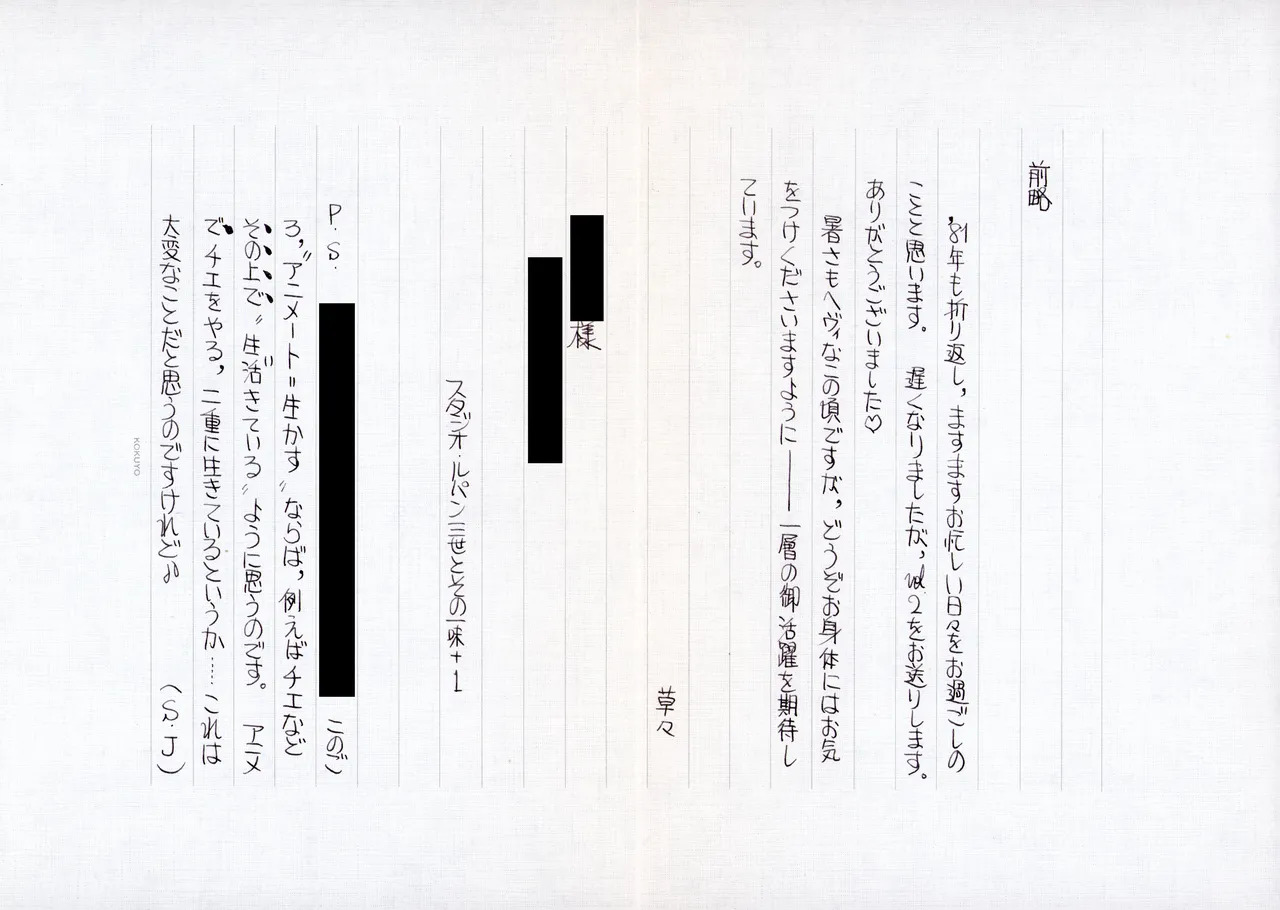 前略
'81年も折り返し，ますますお忙しい日々をお過ごしの
ことと思います。 遅くなりましたが，vol.2をお送りします。
ありがとうございました♡
暑さもヘヴィなこの頃ですが，どうぞお身体にはお気
をつけくださいますように――一層の御活躍を期待し
ています。
草々
様
スタジオ・ルパン三世とその一味+1
P.S. このご
ろ，〝アニメート〟=生かす〟ならば，例えばチエなど
その上で〝生活きている〟ように思うのです。 アニメ
でチエをやる，二重に生きているというか……これは
大変なことだと思うのですけれど♪ (S.J)
KOKUYO